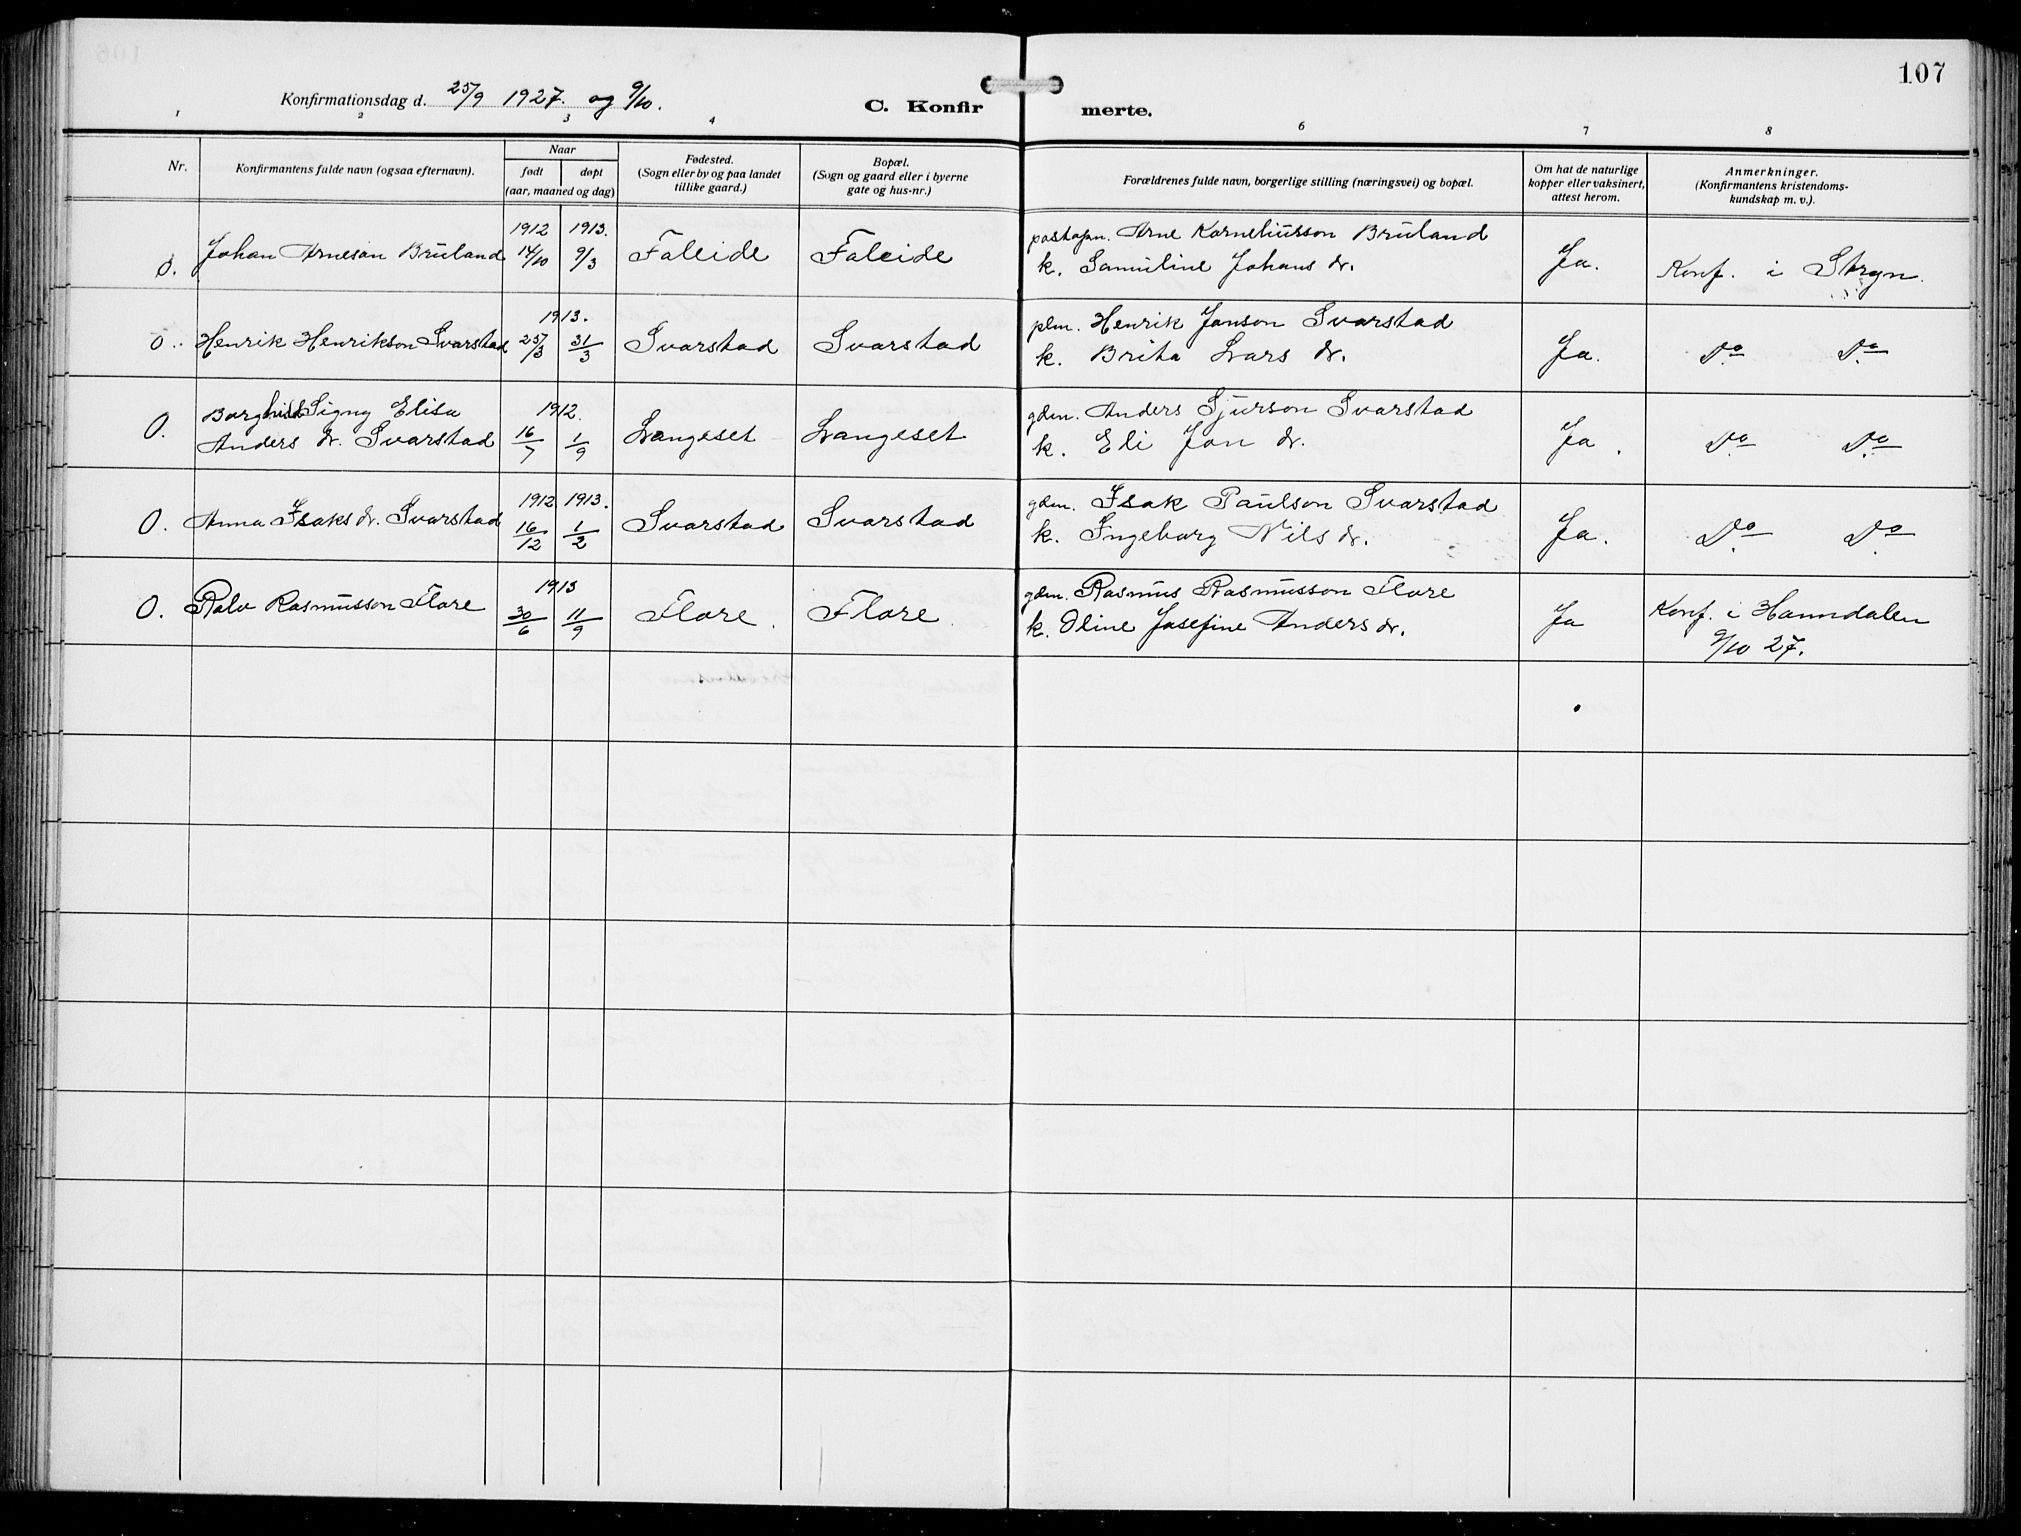 107
Konfirmationsdag d. 25/9 1927. og 9/10.
C. Konfirmerte.
1 2 3 4 6 7 8
Nr.
Konfirmantens fulde navn (ogsaa efternavn).
Naar
født døpt
(aar, maaned og dag)
Fødested.
(Sogn eller by og paa landet
tillike gaard.)
Bopæl.
(Sogn og gaard eller i byerne
gate og hus-nr.)
Forældrenes fulde navn, borgerlige stilling (næringsvei) og bopæl.
Om hat de naturlige
kopper eller vaksinert,
attest herom.
Anmerkninger.
(Konfirmantens kristendoms-
kundskap m. v.).
1912 1913. Arne Korneliusson Bruland
0. Johan Arneson Bruland 14/10 9/3 Faleide Faleide k. Samuline Johans dr. Ja. Konf. i Stryn.
1913. plm. Henrik Janson Svarstad
0. Henrik Henrikson Svarstad 25/3 31/3 Svarstad Svarstad k. Brita Lars dr. Ja. Do Do
Borghild Signy Elisa 1912. gdm. Anders Sjurson Svarstad
0. Anders dr. Svarstad 16/7 1/9 Langeset Langeset k. Eli Jon dr. Ja. Do Do
1912 1913. gdm. Isak Paulson Svarstad
0. Anna Isaks dr. Svarstad 16/12 1/2 Svarstad Svarstad k. Ingeborg Nils dr. Ja. Do Do
1913 gdm. Rasmus Rasmusson Flore
0. Rolv Rasmusson Flore 30/6 11/9 Flore. Flore. k. Oline Josefine Anders dr. Ja Konf. i Hanndalen
9/10 27.